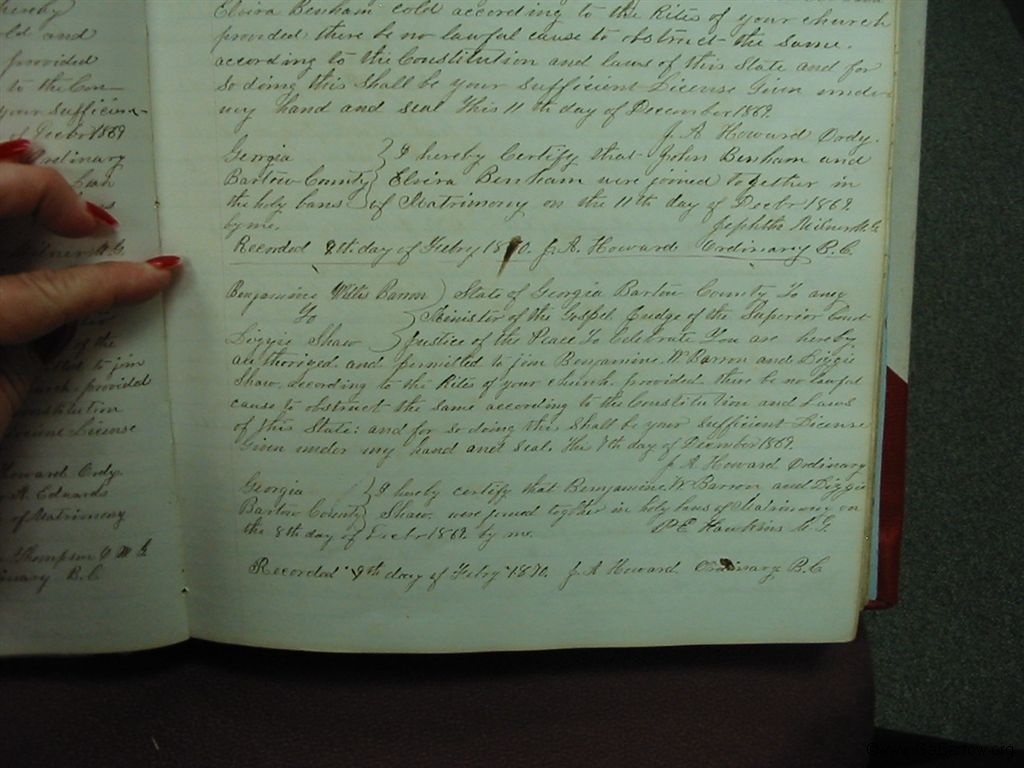 hereby
old and
provided
to the Con-
your sufficien-
of Decbr 1869
Ordinary
Milner M.G.
of the
to join
church, provided
Constitution
License
Howard Ordy.
A. Edwards
of Matrimony
Thompson O M G
Ordinary B.C
Elvira Benham cold according to the Rites of your church
provided there be no lawful cause to obstruct the same.
according to the Constitution and laws of this State and for
so doing this shall be your sufficient License Given under
my hand and seal this 11th day of December 1869.
J. A Howard Ordy.
Georgia } I hereby Certify that John Benham and
Bartow County } Elvira Benham were joined together in
the holy bans } of Matrimony on the 11th day of Decbr 1869.
by me. Jephtha Milner M.G
Recorded 8th day of Febry 1870. J. A. Howard Ordinary B.C.
Benjamine Willis Barron ) State of Georgia Bartow County To any
To ) Minister of the Gospel, Judge of the Superior Court
Liggie Shaw ) Justice of the Peace To Celebrate You are hereby
authorized and permitted to jim Benjamine. W Barron and Liggie
Shaw. according to the Rites of your church. provided there be no lawful
cause to obstruct the same according to the Constitution and Laws
of this State: and for so doing this shall be your sufficient License
Given under my hand and seal. this 7th day of December 1869.
J. A Howard Ordinary
Georgia } I hereby certify that Benjamine. W Barron and Liggie
Bartow County } Shaw. were joined together in holy bans of Matrimony on
the 8th day of Decbr 1869. by me. P. E. Hawkins M.G.
Recorded 9th day of Febry 1870. J. A Howard. Ordinary B.C